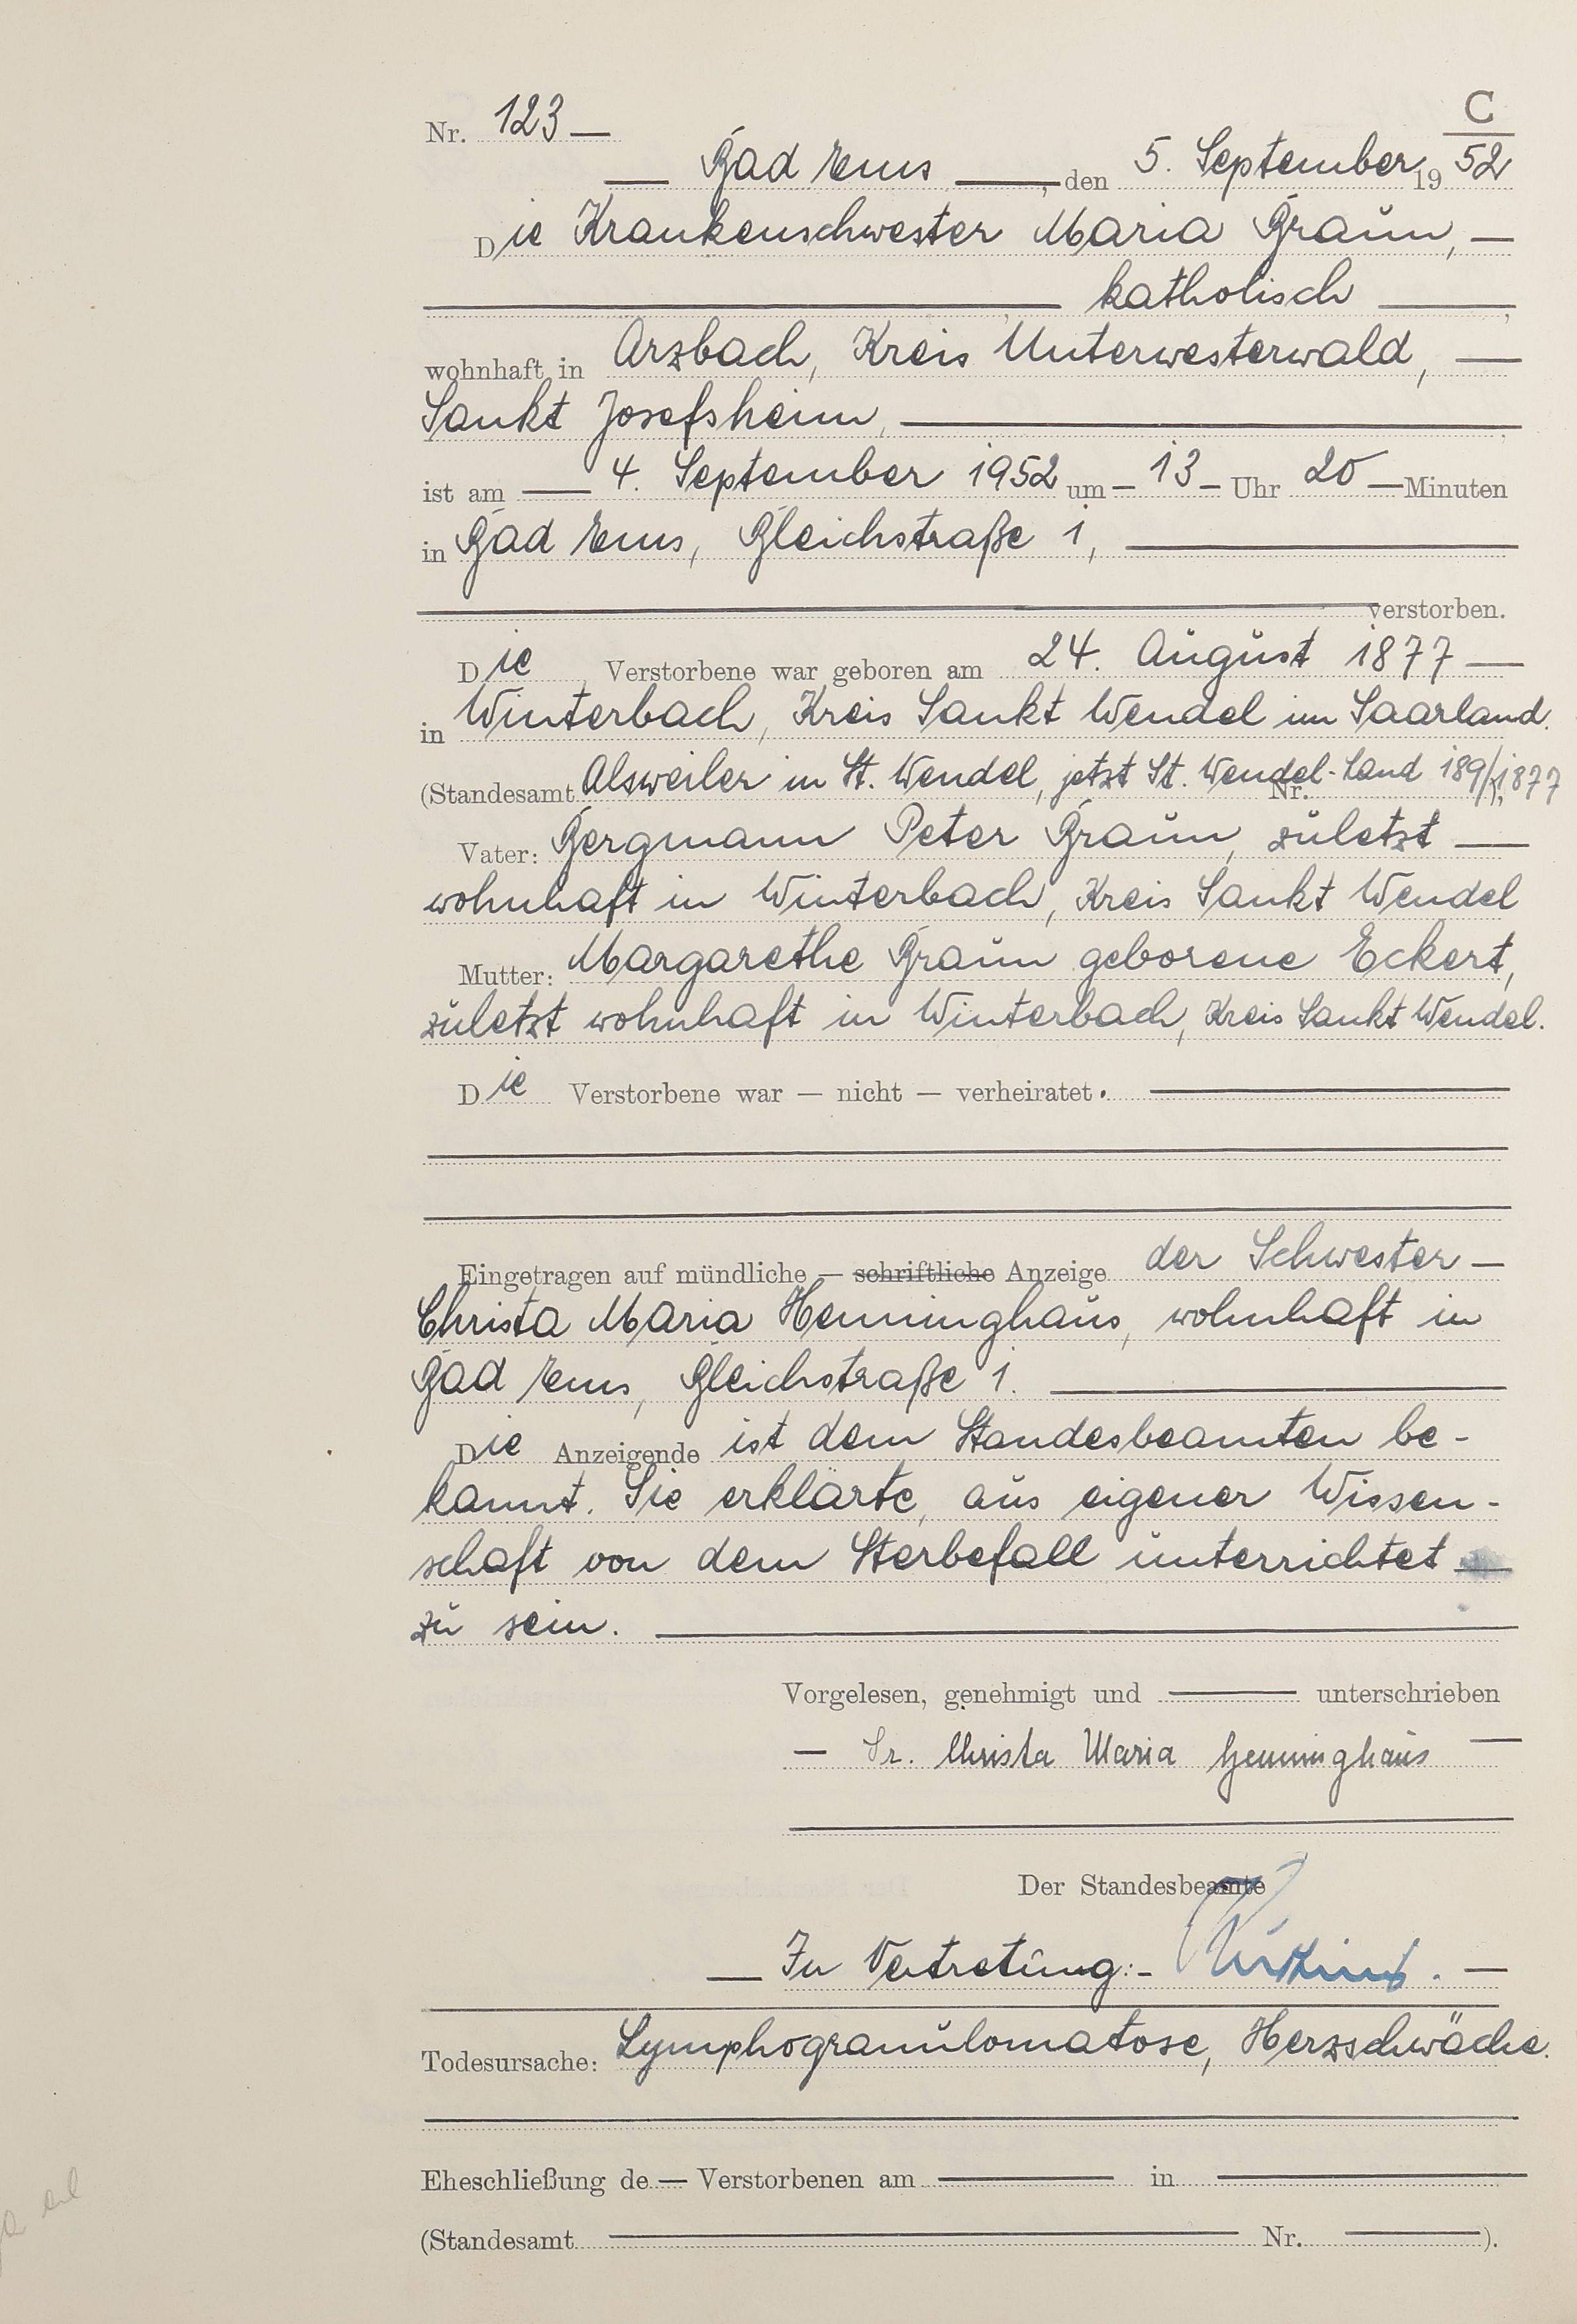 C
Nr. 123 —
— Bad Ems —, den 5. September 19 52
Die Krankenschwester Maria Braun, —
— katholisch —
wohnhaft in Arzbach, Kreis Unterwesterwald, —
Sankt Josefsheim, —
ist am — 4. September 1952 um — 13 — Uhr 20 — Minuten
in Bad Ems, Bleichstraße 1, —
— verstorben.
Die Verstorbene war geboren am 24. August 1877 —
in Winterbach, Kreis Sankt Wendel im Saarland.
(Standesamt Alsweiler in St. Wendel, jetzt St. Wendel-Land Nr. 189/1877),
Vater: Bergmann Peter Braun, zuletzt —
wohnhaft in Winterbach, Kreis Sankt Wendel
Mutter: Margarethe Braun geborene Eckert,
zuletzt wohnhaft in Winterbach, Kreis Sankt Wendel.
Die Verstorbene war — nicht — verheiratet. —
Eingetragen auf mündliche — schriftliche Anzeige der Schwester —
Christa Maria Henninghaus, wohnhaft in
Bad Ems, Bleichstraße 1. —
Die Anzeigende ist dem Standesbeamten be-
kannt. Sie erklärte, aus eigener Wissen-
schaft von dem Sterbefall unterrichtet —
zu sein. —
Vorgelesen, genehmigt und — unterschrieben
— Sr. Christa Maria Henninghaus —
Der Standesbeamte
— In Vertretung:-
Todesursache: Lymphogranulomatose, Herzschwäche.
Eheschließung de — Verstorbenen am — in —
(Standesamt — Nr. —).